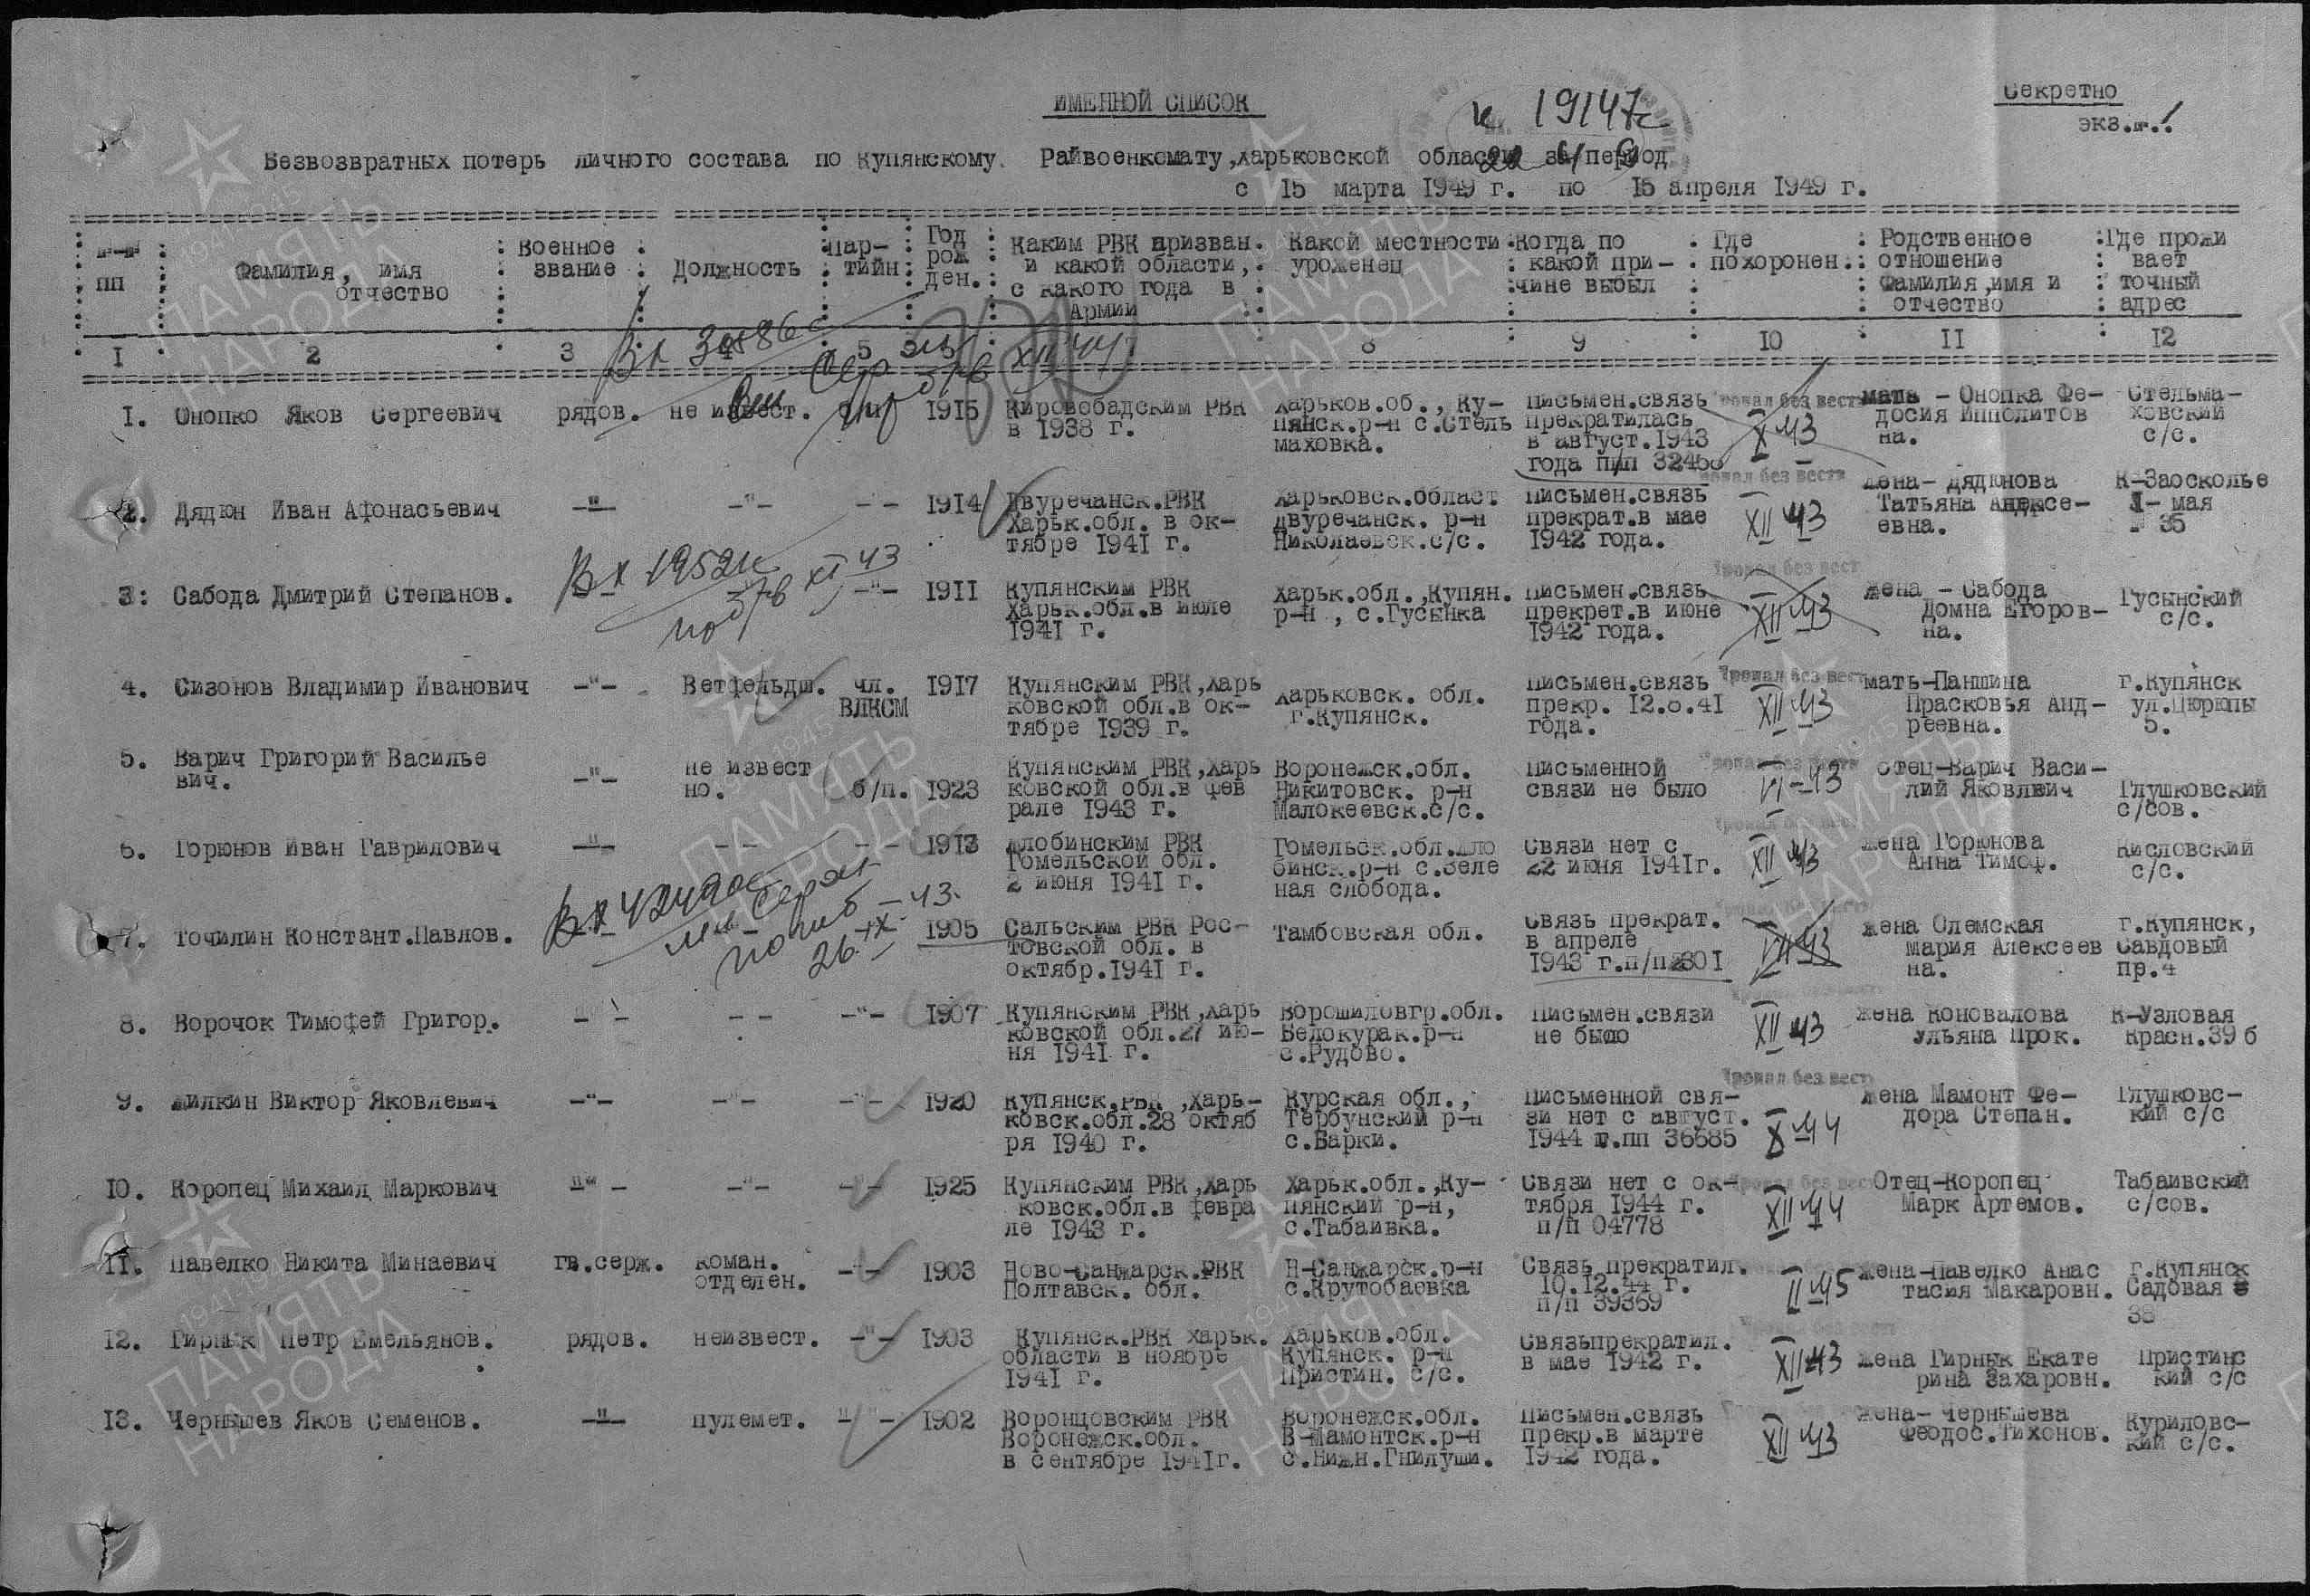 Секретно
экз.№.1
ИМЕННОЙ СПИСОК
к 19147с
Безвозвратных потерь личного состава по Купянскому Райвоенкомату,Харьковской области за период
с 15 марта 1949 г. по 15 апреля 1949 г.
№-№ пп : Фамилия, имя отчество : Военное звание : Должность : Пар- тийн : Год рож ден. : Каким РВК призван и какой области, с какого года в Армии : Какой местности уроженец : Когда по какой при- чине выбыл : Где похоронен : Родственное отношение Фамилия,имя и отчество : Где прожи вает точный адрес
1 2 3 4 5 8 9 10 11 12
Вх 
XII 44
1. Онопко Яков Сергеевич рядов. не извест. 1915 Кировобадским РВК в 1938 г. Харьков.об., Ку- пянск.р-н с.Стель маховка. Письмен.связь прекратилась в август.1943 года п/п 32456 пропал без вести X 43 мать - Онопка Фе- досия Ипполитов на. Стельма- ховский с/с.
2. Дядюн Иван Афонасьевич -"- -"- - - 1914 Двуречанск.РВК Харьк.обл. в ок- тябре 1941 г. Харьковск.област Двуречанск. р-н Николаевск.с/с. Письмен.связь прекрат.в мае 1942 года. пропал без вести XII 43 Жена- Дядюнова Татьяна Андрексе- евна. К-Заосколье 1- мая - 35
Вх 19521с
XI 43
3: Сабода Дмитрий Степанов. -"- 1911 Купянским РВК Харьк.обл.в июле 1941 г. Харьк.обл.,Купян. р-н , с.Гусынка Письмен.связь прекрет.в июне 1942 года. пропал без вест XII 43 Жена - Сабода Домна Егоров- на. Гусынский с/с.
4. Сизонов Владимир Иванович -"- Ветфельдш. чл. ВЛКСМ 1917 Купянским РВК,Харь ковской обл.в ок- тябре 1939 г. Харьковск. обл. г.Купянск. Письмен.связь прекр. 12.8.41 года. Пропал без вест XII 43 мать-Паншина Прасковья Анд- реевна. г.Купянск ул.Цюрюпы 5.
5. Варич Григорий Василье вич. -"- не извест но. б/п. 1923 Купянским РВК,Харь ковской обл.в фев рале 1943 г. Воронежск.обл. Никитовск. р-н Малокеевск.с/с. Письменной связи не было VI-43 Отец-Варич Васи- лий Яковлевич Глушковский с/сов.
6. Горюнов Иван Гаврилович -"- - - - - 1913 Жлобинским РВК Гомельской обл. 2 июня 1941 г. Гомельск.обл.Жло бинск.р-н с.Зеле ная слобода. Связи нет с 22 июня 1941г. XII 43 Жена Горюнова Анна Тимоф. Кисловский с/с.
Вх 42490с
погиб - 43.
26.IX.
7. Точилин Констант.Павлов. 1905 Сальским РВК Рос- товской обл. в октябр.1941 г. Тамбовская обл. Связь прекрат. в апреле 1943 г.п/п2301 VII 43 Жена Олемская Мария Алексеев на. г.Купянск, Савдовый пр.4
8. Ворочок Тимофей Григор. - - - - -"- 1907 Купянским РВК,Харь ковской обл.27 ию- ня 1941 г. Ворошиловгр.обл. Белокурак.р-н с.Рудово. Письмен.связи не было XII 43 Жена Коновалова Ульяна Прок. К-Узловая Красн.39 б
9. Жилкин Виктор Яковлевич -"- -"- -"- 1920 Купянск.РВК ,Харь- ковск.обл.28 октяб ря 1940 г. Курская обл., Тербунский р-н с.Барки. Письменной свя- зи нет с август. 1944 г.пп 36685 Пропал без вест X 44 Жена Мамонт Фе- дора Степан. Глушковс- кий с/с
10. Коропец Михаил Маркович -"- -"- -"- 1925 Купянским РВК,Харь ковск.обл.в февра ле 1943 г. Харьк.обл.,Ку- пянский р-н, с.Табаивка. Связи нет с ок- тября 1944 г. п/п 04778 XII 44 Отец-Коропец Марк Артемов. Табаивский с/сов.
11. Павелко Никита Минаевич гв.серж. коман. отделен. -"- 1903 Ново-Санжарск.РВК Полтавск. обл. Н-Санжарск.р-н с.Крутобаевка Связь прекратил. 10.12.44 г. п/п 39369 II 45 Жена-Павелко Анас тасия Макаровн. г.Купянск Садовая 38
12. Гирнык Петр Емельянов. рядов. неизвест. -"- 1903 Купянск.РВК Харьк. области в ноябре 1941 г. Харьков.обл. Купянск. р-н Пристин. с/с. Связьпрекратил. в мае 1942 г. XII 43 Жена Гирнык Екате рина Захаровн. Пристинс кий с/с
13. Чернышев Яков Семенов. -"- пулемет. -"- 1902 Воронцовским РВК Воронежск.обл. в сентябре 1941г. Воронежск.обл. В-Мамонтск.р-н с.Нижн.Гнилуши. Письмен.связь прекр.в марте 1942 года. XII 43 Жена- Чернышева Феодос.Тихонов. Куриловс- кий с/с.
1941 1945
ПАМЯТЬ
НАРОДА